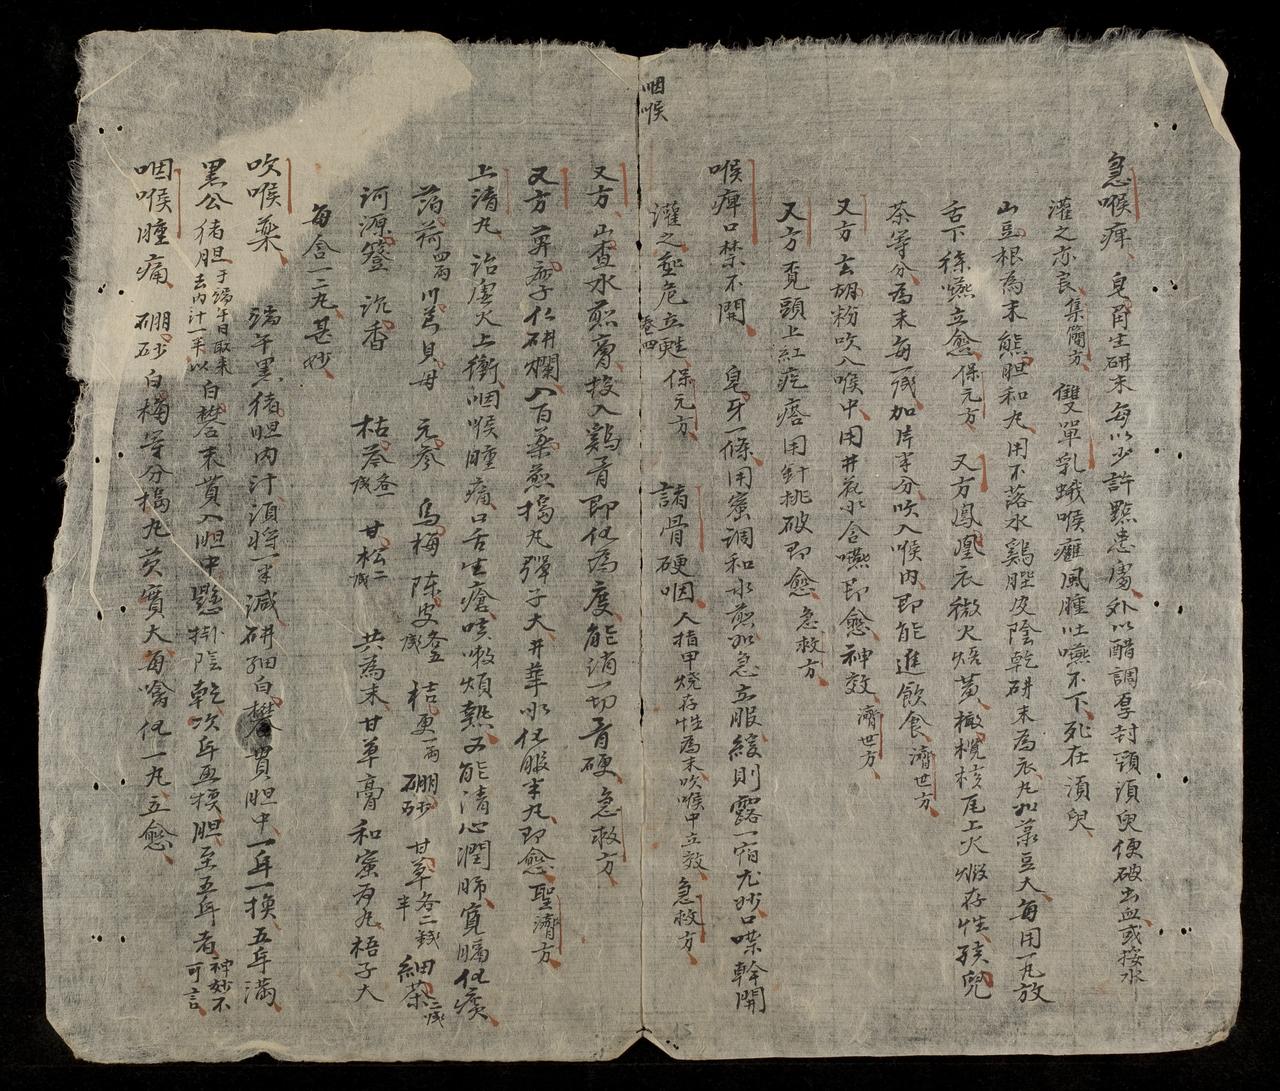 咽喉
急喉痺 皂角生研末每以少許點患處外以醋調厚封頸須臾便破出血或挼水
灌之亦良集簡方 雙單乳蛾喉癰風腫吐嚥不下死在須臾
山豆根為末熊胆和丸用不落水鷄膍皮陰乾研末為衣丸如菉豆大每用一丸放
舌下徐嚥立愈保元方 又方鳳凰衣微火焙黃橄欖核尾上火煅存性孩兒
茶等分為末每一戔加片半分吹入喉内即能進飲食濟世方
又方玄胡粉吹入喉中用井花水含嚥即愈神效濟世方
又方覓頭上紅疙瘩用針挑破即愈急救方
喉痺口禁不開 皂牙一條用蜜調和水煎如急立服緩則露一宿尤妙口噤幹開
灌之垂危立甦保元方 諸骨硬咽人指甲燒存性為末吹喉中立效急救方
卷四
又方山查水煎膏投入鷄骨即化為度能消一切骨硬急救方
又方萆麻子仁研爛入百藥煎搗丸彈子大井華水化服半丸即愈聖濟方
上清丸 治虛火上衝咽喉腫痛口舌生瘡咳嗽煩熱又能清心潤肺寬膈化痰
薄荷四兩 川芎貝母 元參 烏梅 陈皮各五戔 桔更一兩 硼砂 甘草各二錢半 細茶二戔
訶源簦 沉香 枯苓各一戔 甘松二戔 共為末甘草膏和蜜為丸梧子大
每含一二丸甚妙
吹喉藥 端午黑猪胆内汁須將一半減研細白礬貫胆中一年一換五年満
黑公猪胆于端午日取来去内汁一半以白礬末貫入胆中懸掛陰乾次年再換胆至五年者神妙不可言
咽喉腫痛 硼砂白梅等分搗丸芡實大每噙化一丸立愈
15